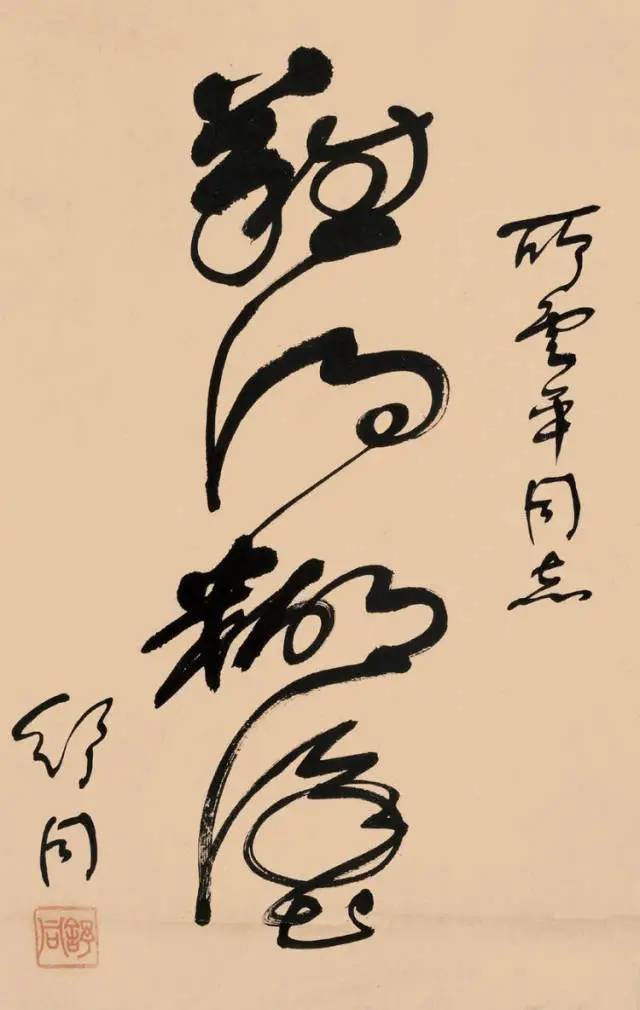 所雲平同志
難得糊塗
舒同
舒同